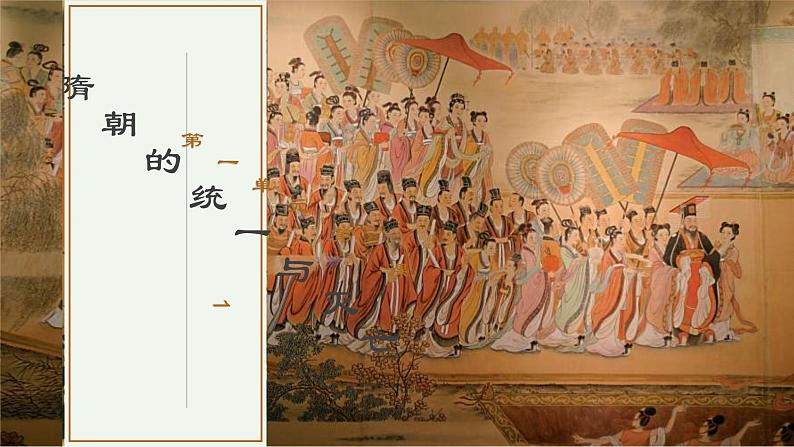 隋朝的统一与灭亡
第一单
1